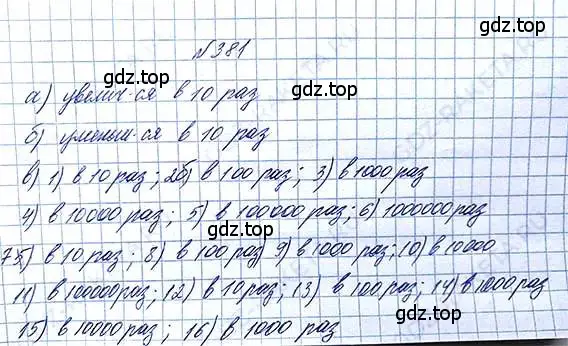 №381
а) увелич-ся в 10 раз
б) уменьш-ся в 10 раз
в) 1) в 10 раз; 2б) в 100 раз; 3) в 1000 раз
4) в 10000 раз; 5) в 100000 раз; 6) 1000000 раз
7) в 10 раз; 8) в 100 раз 9) в 1000 раз; 10) в 10000
11) в 100000 раз; 12) в 10 раз; 13) в 100 раз; 14) в 1000 раз
15) в 10000 раз; 16) в 1000 раз
gdz.top
gdz.top
gdz.top
gdz.top
gdz.top
gdz.top
gdz.top
gdz.top
GDZ-RAKETA.RU